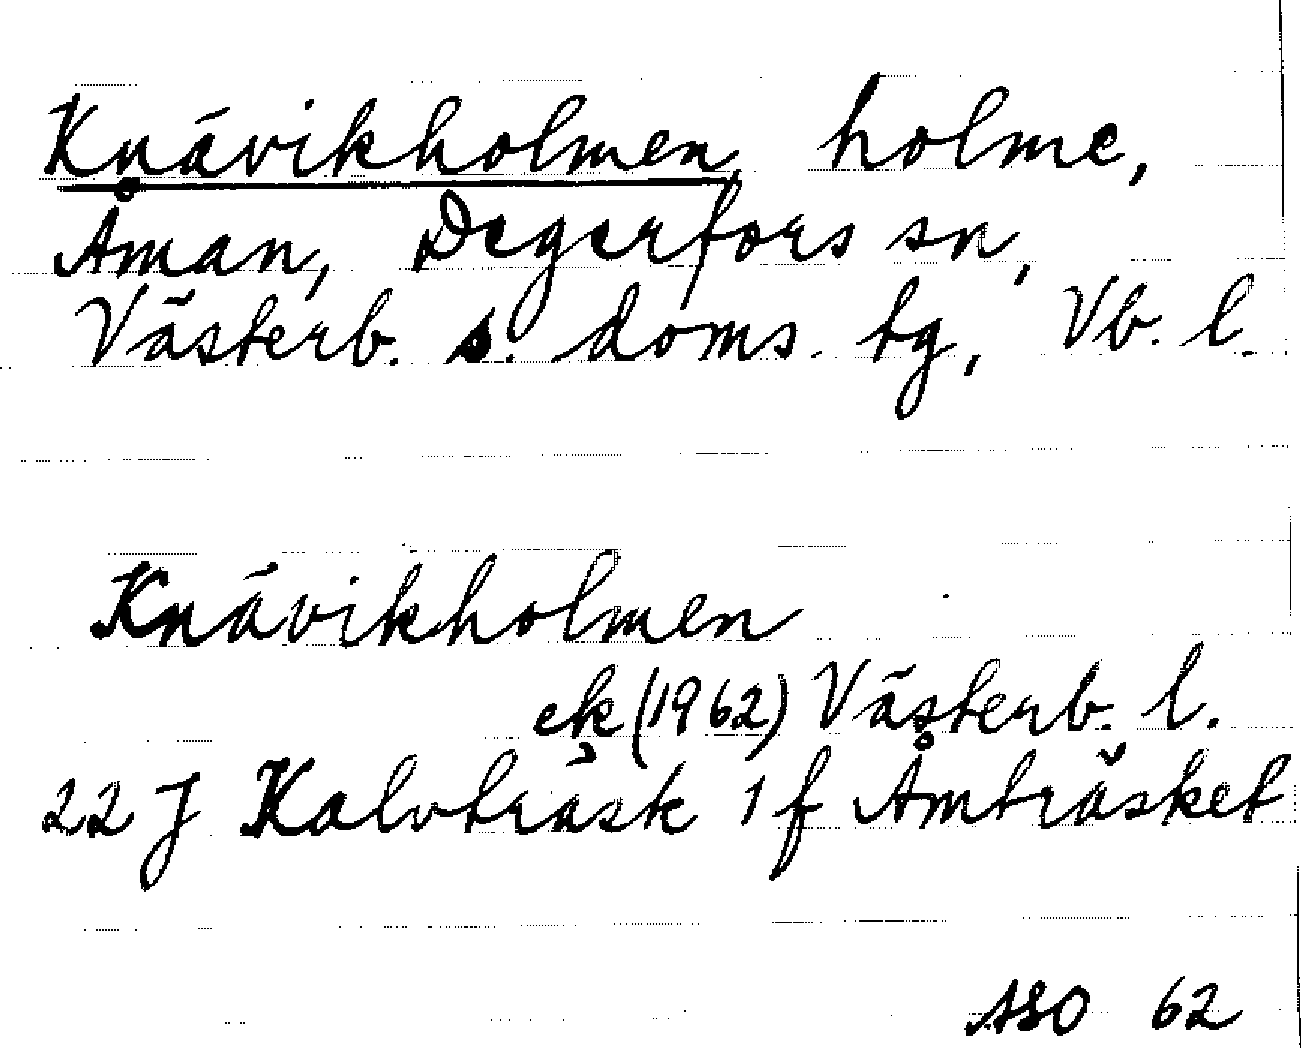 Knävikholmen, holme,
Åman, Degerfors sn,
Västerb. s. doms. tg, Vb. l.
Knävikholmen
ek (1962) Västerb. l.
22 J Kalvträsk 1 f Åmträsket
ASO 62